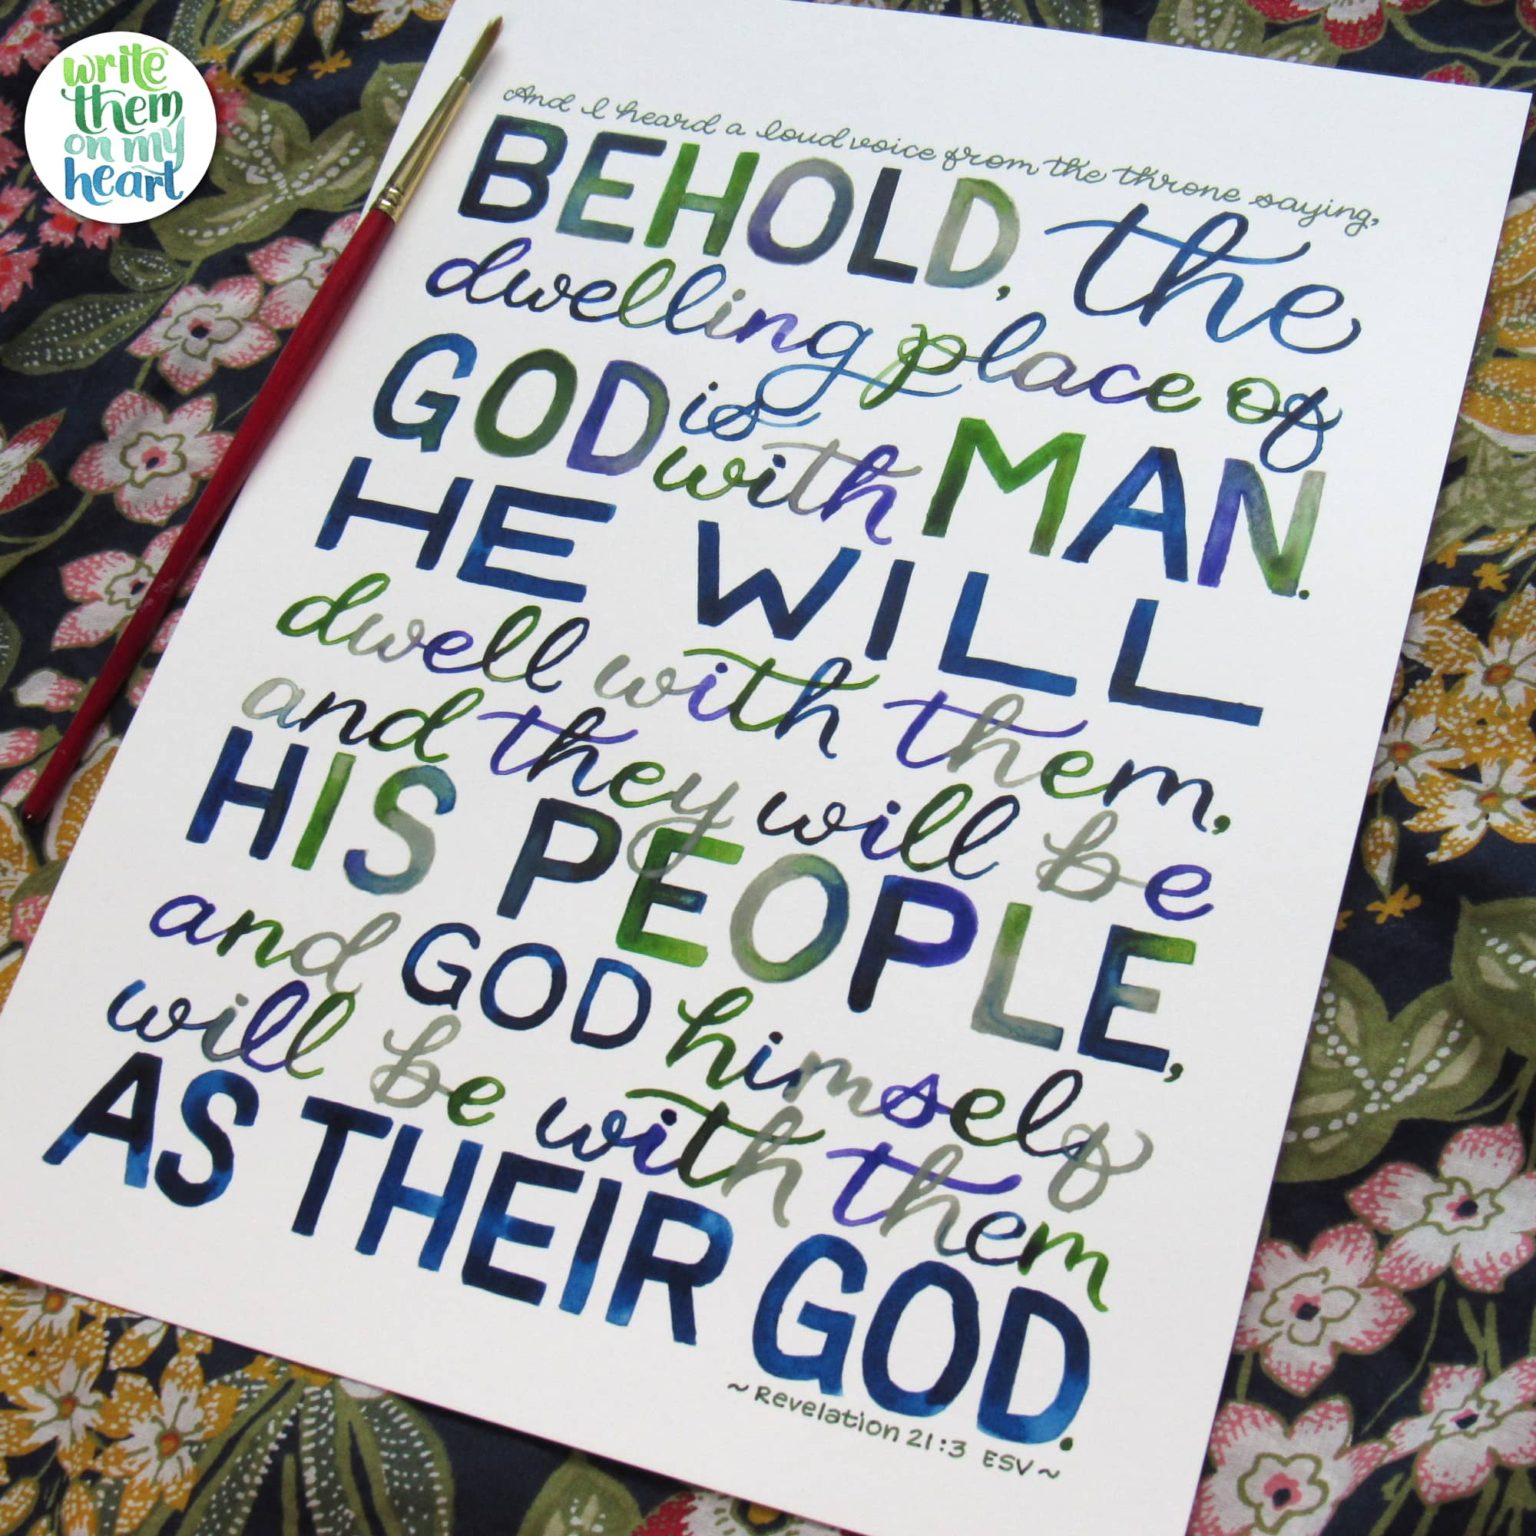 write
them
on my
heart
And I heard a loud voice from the throne saying,
BEHOLD, the
dwelling place of
GOD is with MAN.
HE WILL
dwell with them,
and they will be
HIS PEOPLE,
and GOD himself
will be with them
AS THEIR GOD.
~Revelation 21:3 ESV~